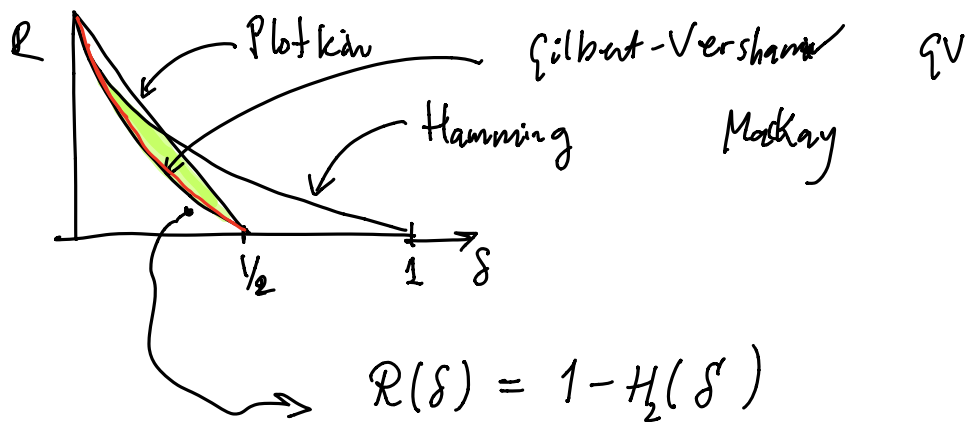 R Plotkin Gilbert-Vershamir GV
Hamming MacKay
1/2 1 δ
R(δ) = 1 - H₂(δ)